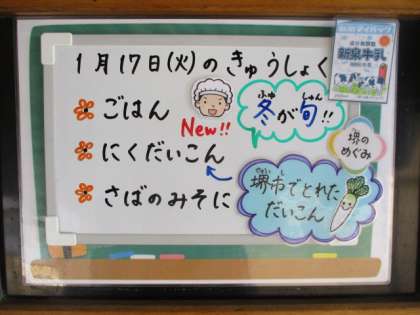 1月17日(火)のきゅうしょく
ごはん
New!!
にくだいこん
さばのみそに
ふゆ しゅん
冬が旬!!
新泉牛乳
堺の
めぐみ
堺市でとれた
だいこん